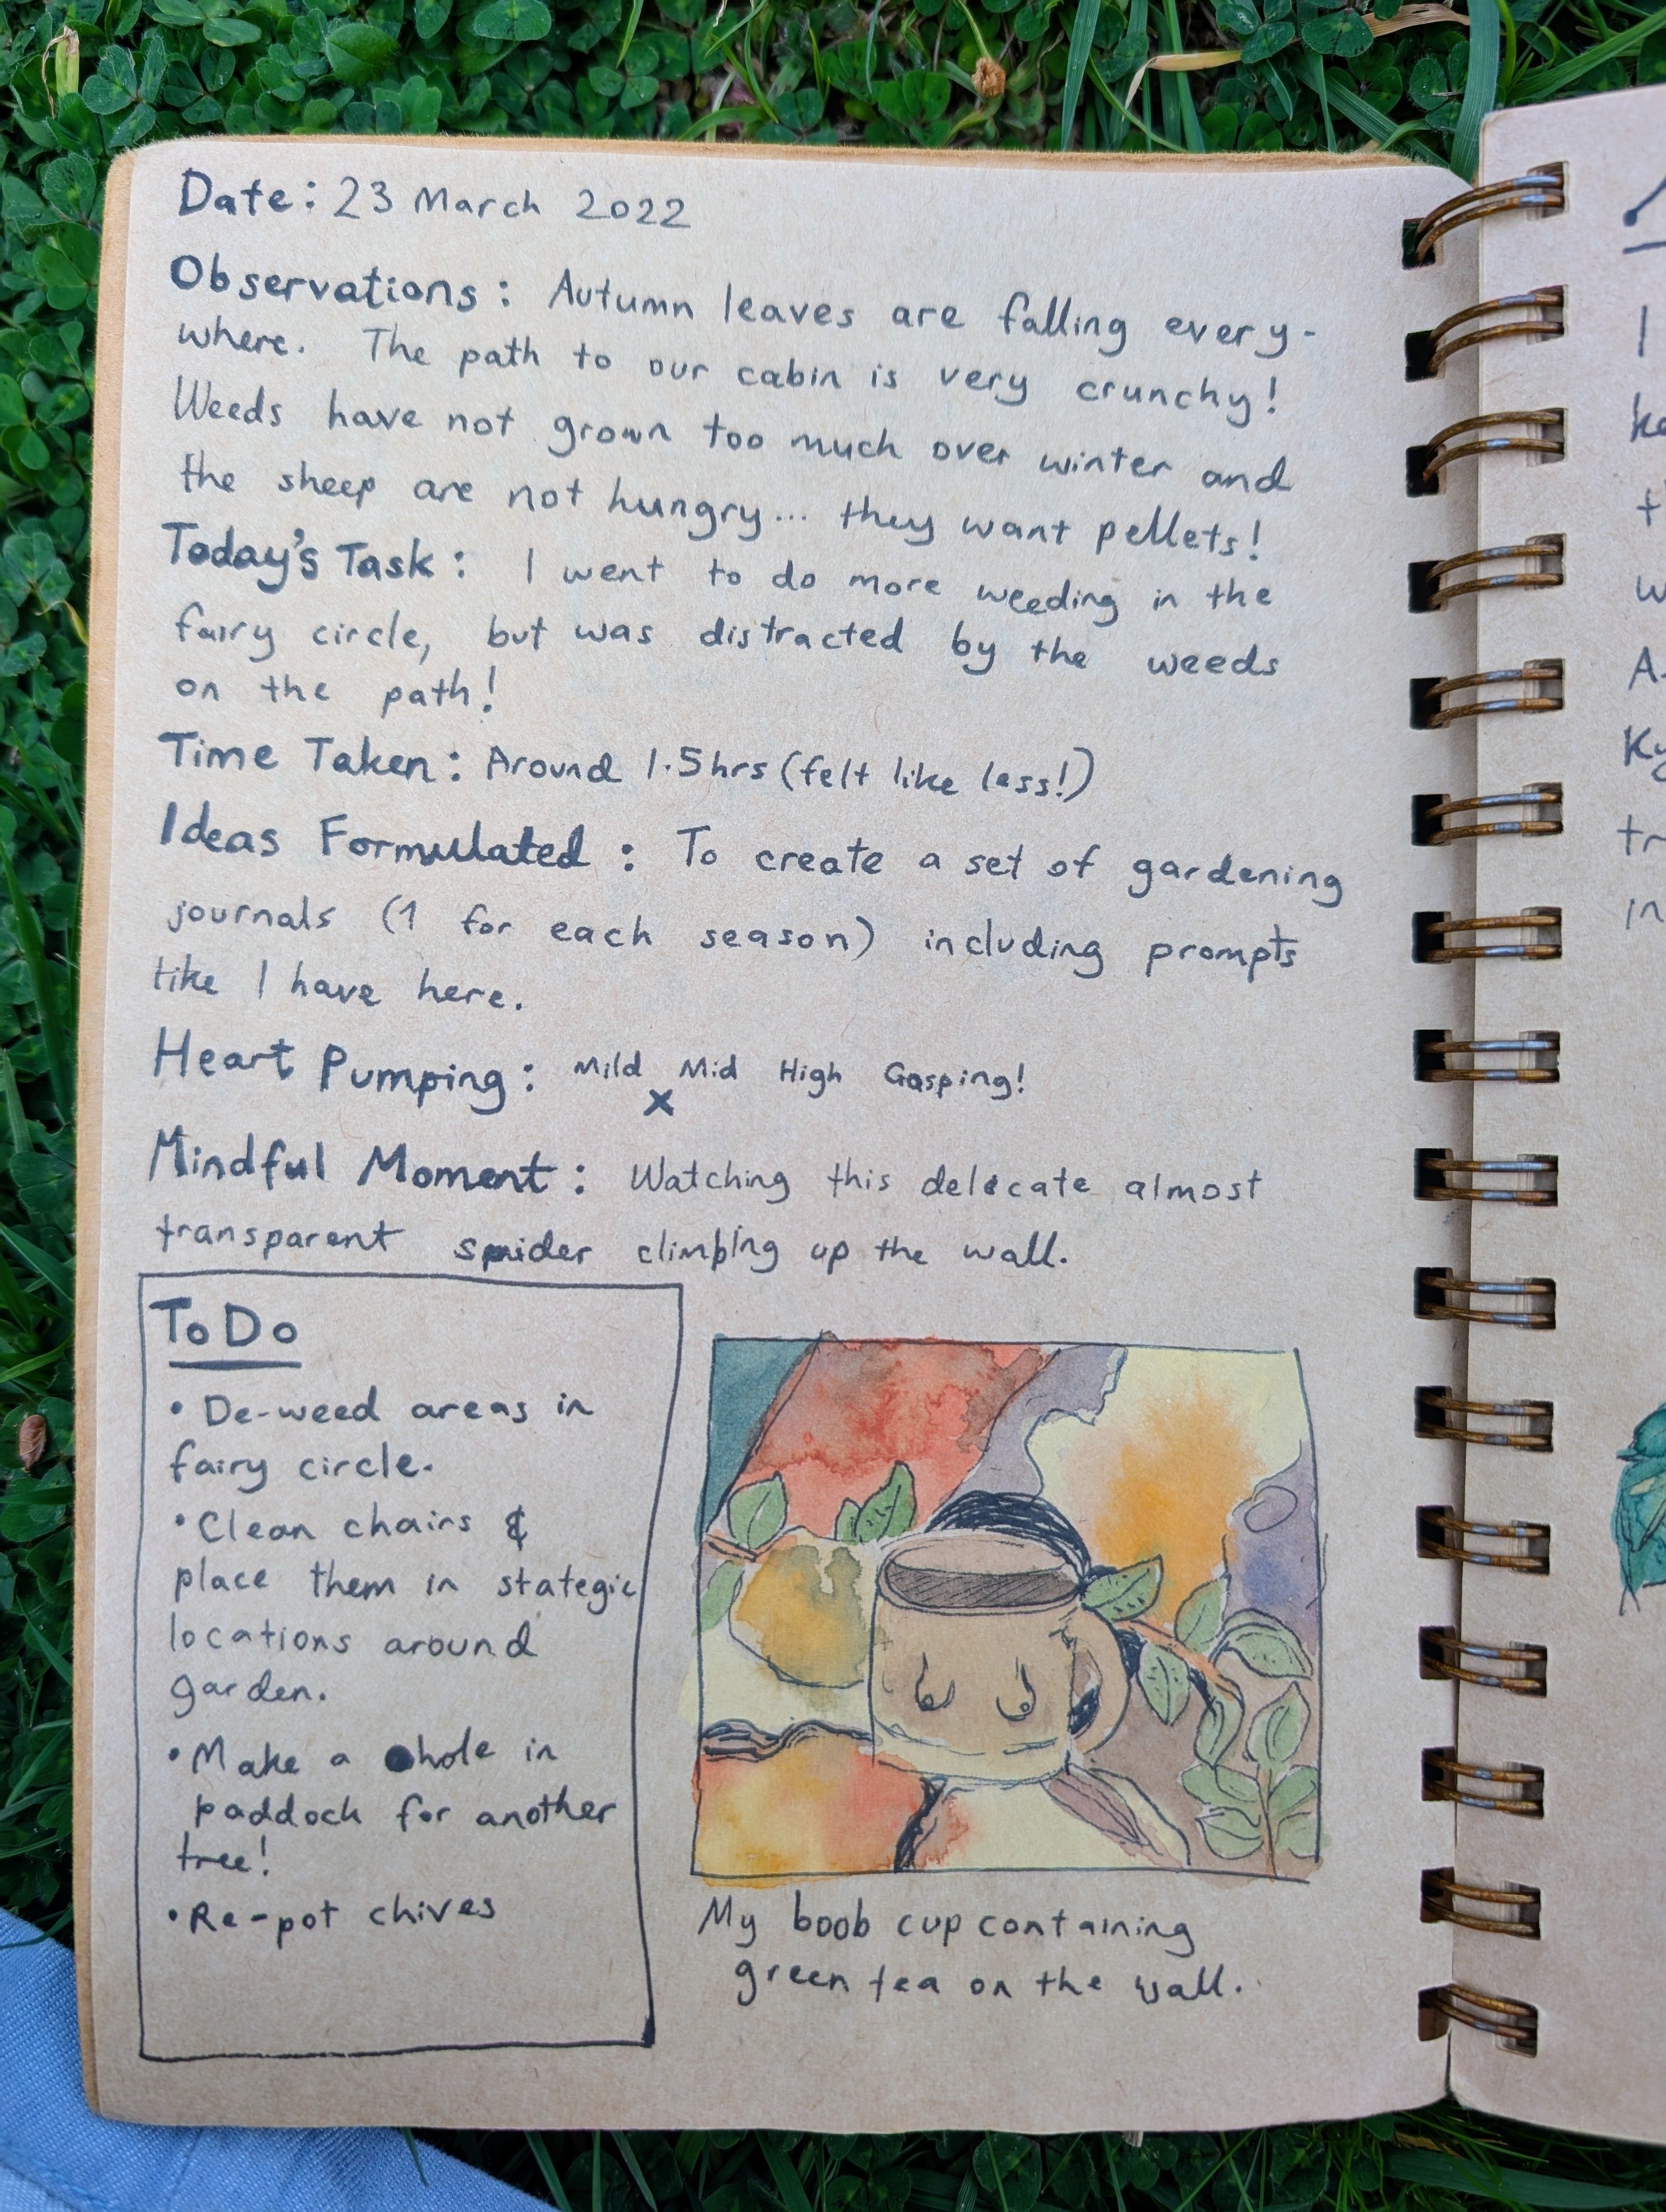 Date: 23 March 2022
Observations: Autumn leaves are falling every-
where. The path to our cabin is very crunchy!
Weeds have not grown too much over winter and
the sheep are not hungry... they want pellets!
Today's Task: I went to do more weeding in the
fairy circle, but was distracted by the weeds
on the path!
Time Taken: Around 1.5hrs (felt like less!)
Ideas Formulated: To create a set of gardening
journals (1 for each season) including prompts
like I have here.
Heart Pumping: Mild Mid High Gasping!
x
Mindful Moment: Watching this delicate almost
transparent spider climbing up the wall.
To Do
• De-weed areas in
fairy circle.
• Clean chairs &
place them in stategic
locations around
garden.
• Make a hole in
paddock for another
tree!
• Re-pot chives
My boob cup containing
green tea on the wall.
I